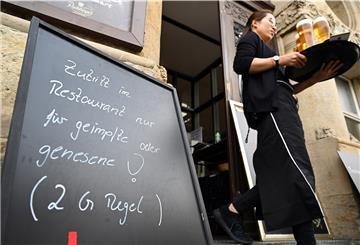 Zutritt im
Restaurant nur
für geimpfte oder
genesene !
( 2 G Regel )